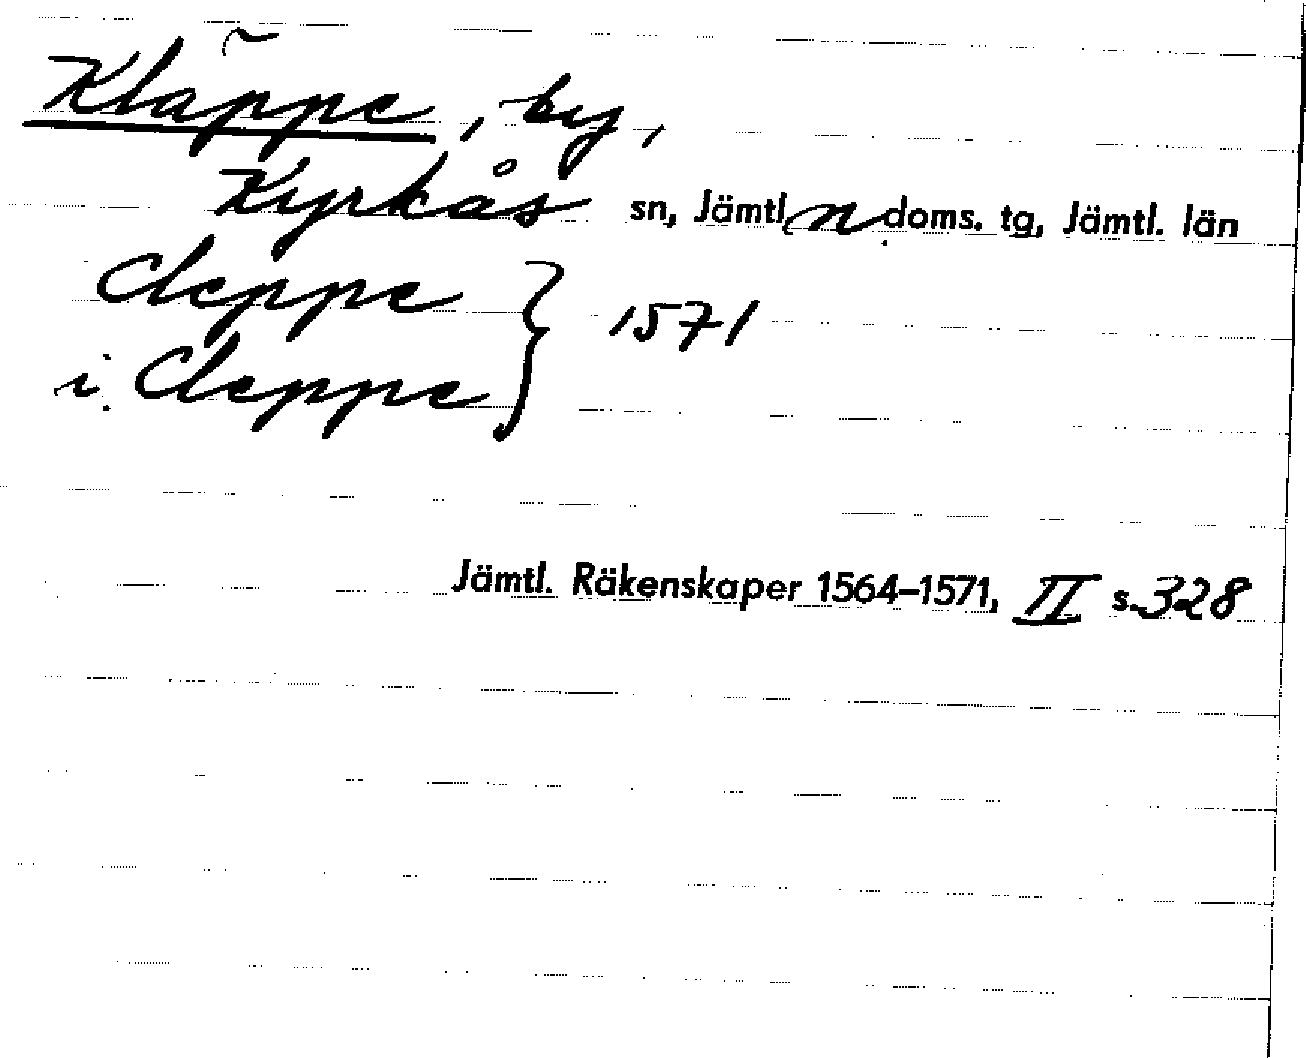 Kläppe, by,
Kyrkås sn, Jämtl. n. doms. tg, Jämtl. län
Cleppe
i Cleppe } 1571
Jämtl. Räkenskaper 1564–1571, II s. 328